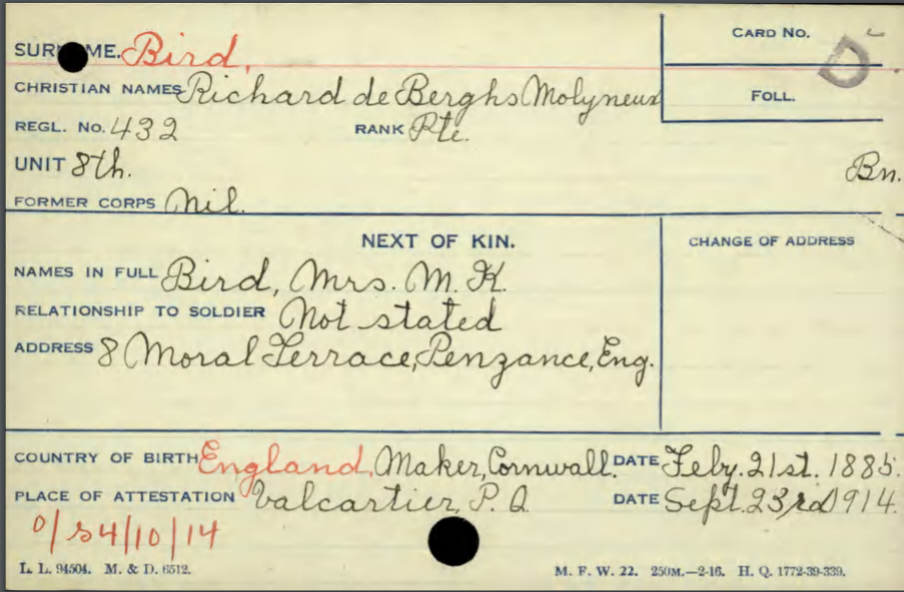 CARD No.
SURNAME. Bird,
D
CHRISTIAN NAMES Richard de Berghs Molyneux
FOLL.
REGL. No. 432 RANK Pte.
UNIT 8th. Bn.
FORMER CORPS Nil.
NEXT OF KIN. CHANGE OF ADDRESS
NAMES IN FULL Bird, Mrs. M. K.
RELATIONSHIP TO SOLDIER Not stated
ADDRESS 8 Moral Terrace, Penzance, Eng.
COUNTRY OF BIRTH England, Maker, Cornwall. DATE Feby. 21st. 1885.
PLACE OF ATTESTATION Valcartier, P. Q. DATE Sept. 23rd 1914.
0/s4/10/14
L. L. 94504. M. & D. 6512. M. F. W. 22. 250M.—2-16. H. Q. 1772-39-339.